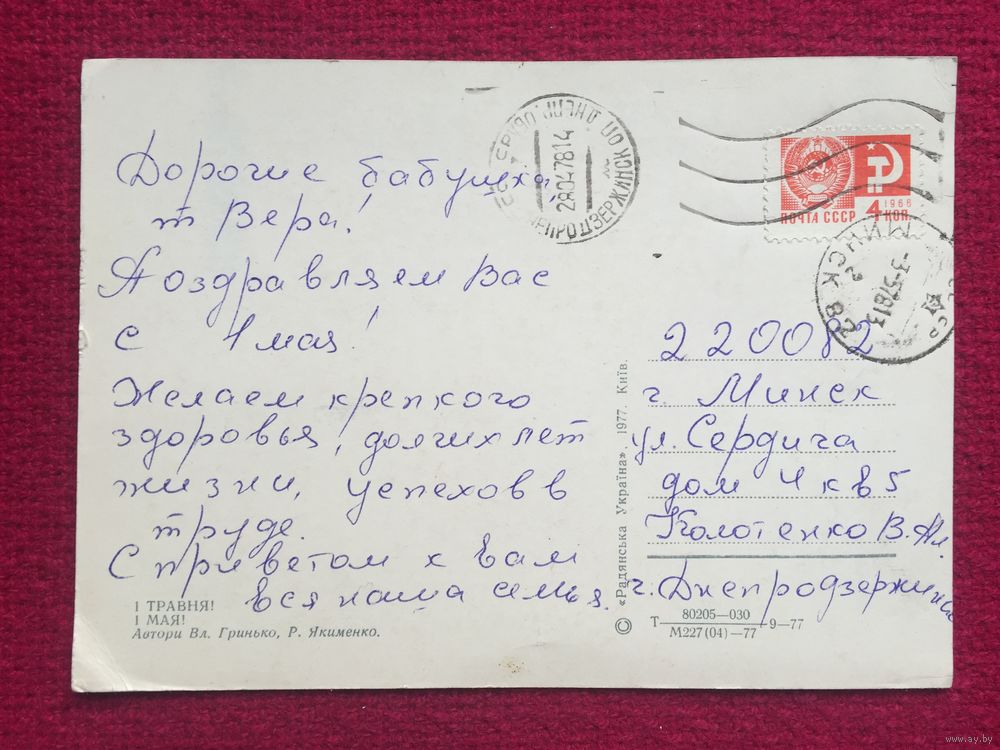 Дорогие бабушка,
т Вера!
Поздравляем Вас
с 1 мая!
Желаем крепкого
здоровья, долгих лет
жизни, успехов в
труде.
С приветом к Вам
вся наша семья.
1 ТРАВНЯ!
1 МАЯ!
Автори Вл. Гринько, Р. Якименко.
© «Радянська Україна», 1977. Київ.
28047814
ПОЧТА СССР
4 КОП.
1966
МИНСК
220082
г. Минск
ул. Сердича
дом 4 кв 5
Колотенко В. М.
г. Днепродзержинск
Т 80205—030 9—77
М227(04)—77
www.ay.by